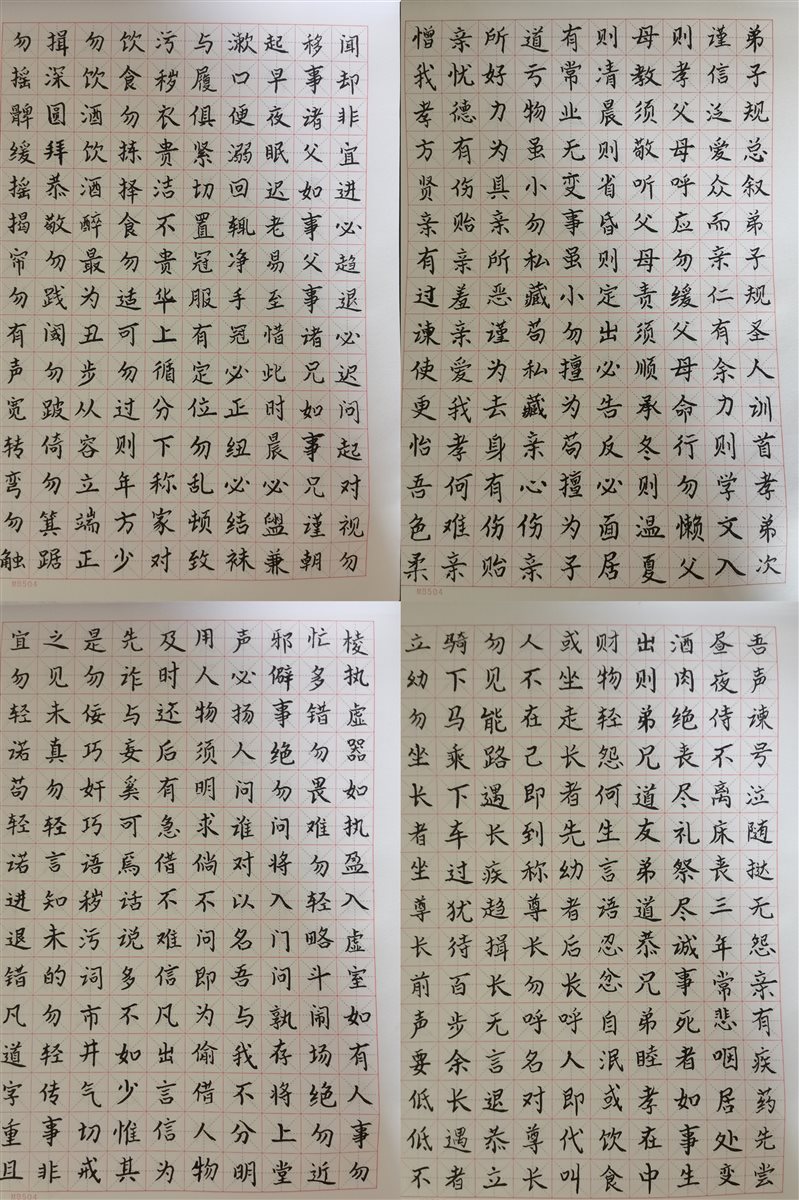 弟子规总叙弟子规圣人训首孝弟次
谨信泛爱众而亲仁有余力则学文入
则孝父母呼应勿缓父母命行勿懒父
母教须敬听父母责须顺承冬则温夏
则凊晨则省昏则定出必告反必面居
有常业无变事虽小勿擅为苟擅为子
道亏物虽小勿私藏苟私藏亲心伤亲
所好力为具亲所恶谨为去身有伤贻
亲忧德有伤贻亲羞亲爱我孝何难亲
憎我孝方贤亲有过谏使更怡吾色柔
MB504
吾声谏号泣随挞无怨亲有疾药先尝
昼夜侍不离床丧三年常悲咽居处变
酒肉绝丧尽礼祭尽诚事死者如事生
出则弟兄道友弟道恭兄弟睦孝在中
财物轻怨何生言语忍忿自泯或饮食
或坐走长者先幼者后长呼人即代叫
人不在己即到称尊长勿呼名对尊长
勿见能路遇长疾趋揖长无言退恭立
骑下马乘下车过犹待百步余长遇者
立幼勿坐长者坐尊长前声要低低不
闻却非宜进必趋退必迟问起对视勿
移事诸父如事父事诸兄如事兄谨朝
起早夜眠迟老易至惜此时晨必盥兼
漱口便溺回辄净手冠必正纽必结袜
与履俱紧切置冠服有定位勿乱顿致
污秽衣贵洁不贵华上循分下称家对
饮食勿拣择食勿适可勿过则年方少
勿饮酒饮酒醉最为丑步从容立端正
揖深圆拜恭敬勿践阈勿跛倚勿箕踞
勿摇髀缓摇揭帘勿有声宽转弯勿触
MB504
棱执虚器如执盈入虚室如有人事勿
忙多错勿畏难勿轻略斗闹场绝勿近
邪僻事绝勿问将入门问孰存将上堂
声必扬人问谁对以名吾与我不分明
用人物须明求倘不问即为偷借人物
及时还后有急借不难信凡出言信为
先诈与妄奚可焉话说多不如少惟其
是勿佞巧奸巧语秽污词市井气切戒
之见未真勿轻言知未的勿轻传事非
宜勿轻诺苟轻诺进退错凡道字重且
MB504